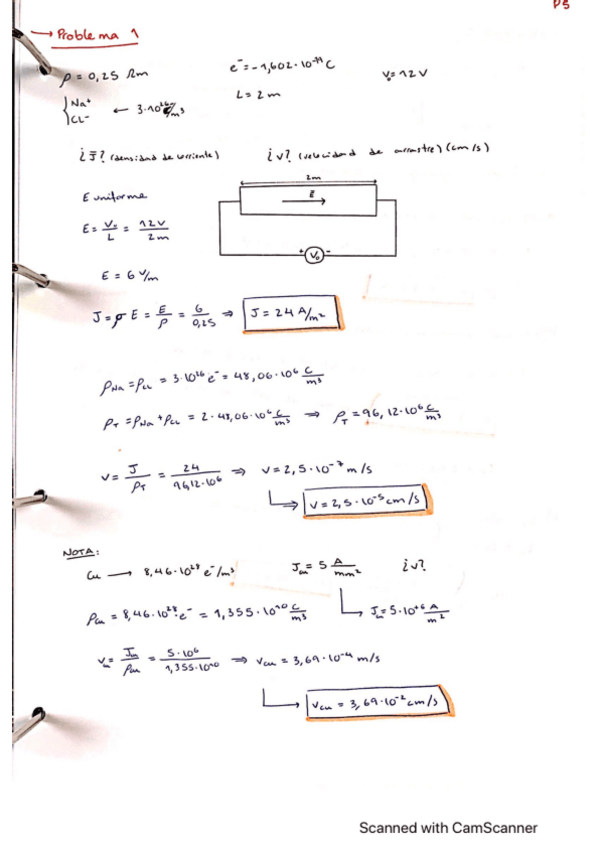 P5
→ Problema 1
ρ = 0,25 Ωm
e⁻ = -1,602·10⁻¹⁹ C
V₀ = 12 V
L = 2 m
{ Na⁺
CL⁻ ← 3·10²⁶ /m³
¿J̄? (densidad de corriente)
¿v? (velocidad de arrastre) (cm/s)
E uniforme
2m
E
E = V₀/L = 12V/2m
+ V₀ -
E = 6 V/m
J = σ E = E/ρ = 6/0,25 ⇒ J = 24 A/m²
ρNa = ρCL = 3·10²⁶ e⁻ = 48,06·10⁶ C/m³
ρT = ρNa + ρCL = 2·48,06·10⁶ C/m³ ⇒ ρT = 96,12·10⁶ C/m³
v = J/ρT = 24/96,12·10⁶ ⇒ v = 2,5·10⁻⁷ m/s
v = 2,5·10⁻⁵ cm/s
NOTA:
Cu → 8,46·10²⁸ e⁻/m³
Jcu = 5 A/mm²
¿v?
ρcu = 8,46·10²⁸·e⁻ = 1,355·10¹⁰ C/m³
Jcu = 5·10⁺⁶ A/m²
vcu = Jcu/ρcu = 5·10⁶/1,355·10¹⁰ ⇒ vcu = 3,69·10⁻⁴ m/s
vcu = 3,69·10⁻² cm/s
Scanned with CamScanner